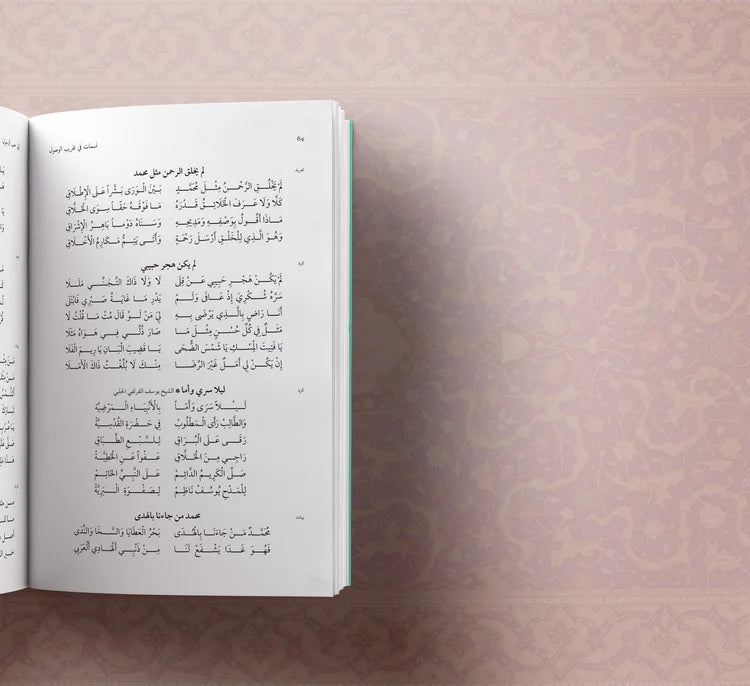 ٦٤
نسمات في تقريب الوصول
تفريد
لم يخلق الرحمن مثل محمد
لَمْ يَخْلُقِ الرَّحْمٰنُ مِثْلَ مُحَمَّدٍ بَيْنَ الْوَرَى بَشَراً عَلَى الْإِطْلَاقِ
كَلَّا وَلَا عَرَفَ الْخَلَائِقُ قَدْرَهُ مَا فَوْقَهُ حَقّاً سِوَى الْخَلَّاقِ
مَاذَا أَقُولُ بِوَصْفِهِ وَمَدِيحِهِ وَسَنَاهُ دَوْماً بَاهِرُ الْإِشْرَاقِ
وَهُوَ الَّذِي لِلْخَلْقِ أُرْسِلَ رَحْمَةً وَأَتَى يُتِمُّ مَكَارِمَ الْأَخْلَاقِ
كرد
لم يكن هجر حبيبي
لَمْ يَكُنْ هَجْرِ حَبِيبِي عَنْ قِلَى لَا وَلَا ذَاكَ التَّجَنِّي مَلَلَا
سَرَّهُ شُكْرِي إِذْ عَافَى وَلَمْ يَدْرِ مَا غَايَةُ صَبْرِي فَابْتَلَى
أَنَا رَاضٍ بِالَّذِي يَرْضَى بِهِ لِي مَنْ لَوْ قَالَ مُتْ مَا قُلْتُ لَا
مَثَلٌ فِي كُلِّ حُسْنٍ مِثْلَ مَا صَارَ ذُلِّي فِي هَوَاهُ مَثَلَا
يَا فَتِيتَ الْمِسْكِ يَا شَمْسَ الضُّحَى يَا قَضِيبَ الْبَانِ يَا رِيمَ الْفَلَا
إِنْ يَكُنْ لِي أَمَلٌ غَيْرَ الرِّضَا مِنْكَ لَا بُلِّغْتُ ذَاكَ الْأَمَلَا
كرد
ليلا سرى وأما * الشيخ يوسف القرلقي الحلبي
لَيْلاً سَرَى وَأَمَّا بِالْأَنْبِيَاءِ الْمَرْضِيَّةْ
وَالطَّالِبُ رَأَى الْمَطْلُوبْ فِي حَضْرَةِ الْقُدْسِيَّةْ
رَقَى عَلَى الْبُرَاقِ لِلسَّبْعِ الطِّبَاقِ
رَاجِي مِنَ الْخَلَّاقِ عَفْواً عَنِ الْخَطِيَّةْ
صَلَّى الْكَرِيمُ الدَّائِمْ عَلَى النَّبِيِّ الْخَاتِمْ
لِلْمَدْحِ يُوسُفْ نَاظِمْ لِصَفْوَةِ الْبَرِيَّةْ
بيات
محمد من جاءنا بالهدى
مُحَمَّدٌ مَنْ جَاءَنَا بِالْهُدَى بَحْرُ الْعَطَايَا وَالسَّخَا وَالنَّدَى
فَهُوَ غَدَا يَشْفَعُ لَنَا مِنْ ذَنْبِي الْهَادِي الْعَرَبِي